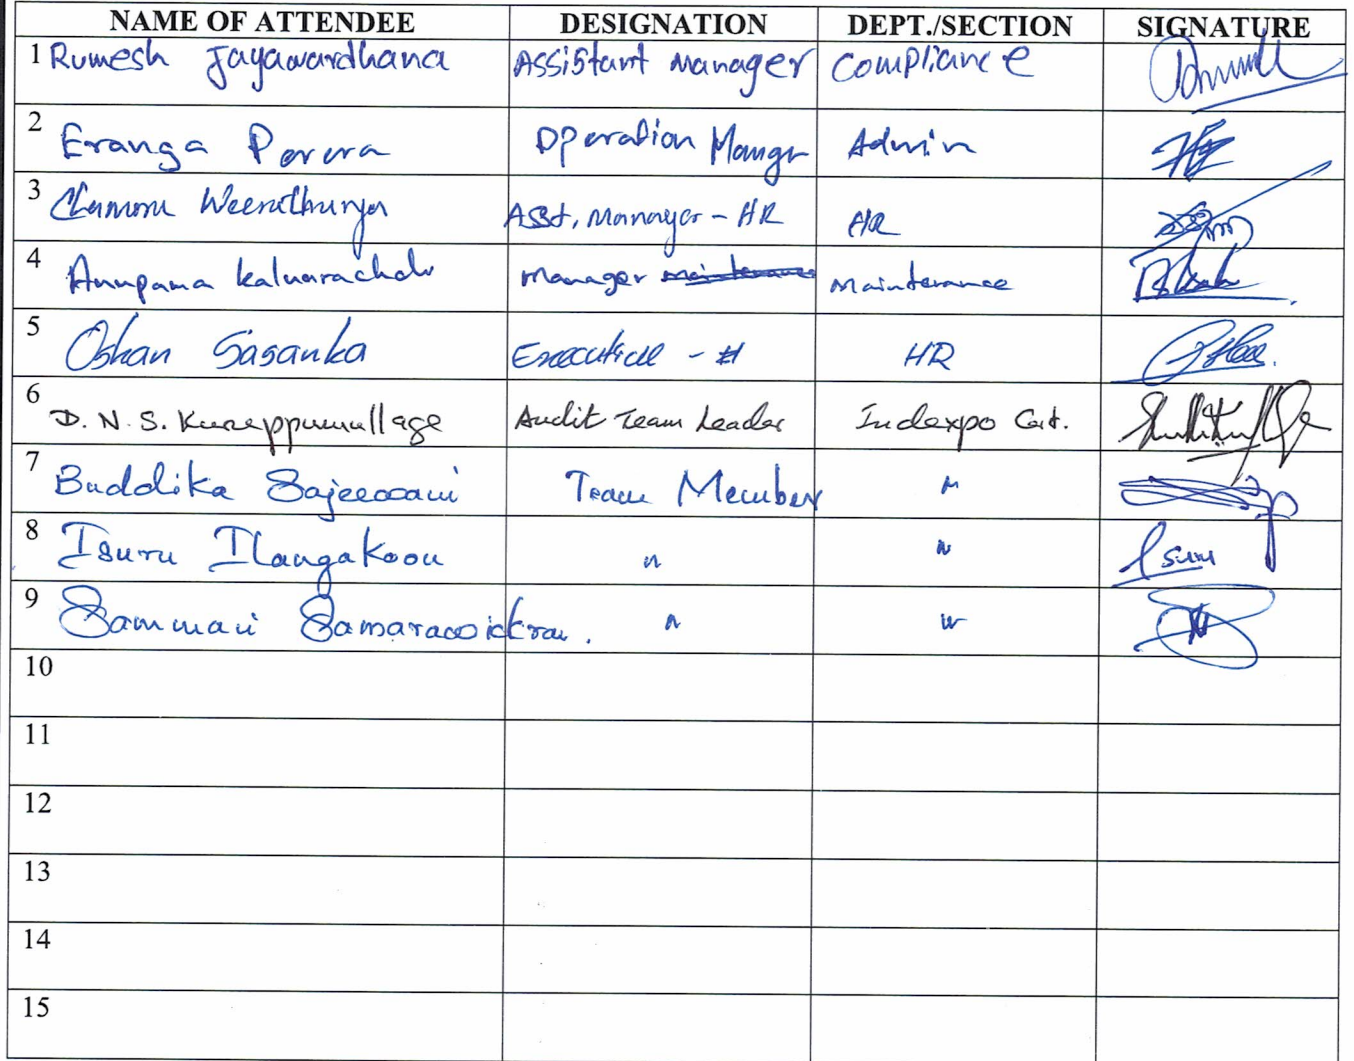 NAME OF ATTENDEE DESIGNATION DEPT./SECTION SIGNATURE
1 Rumesh Jayawardhana Assistant Manager Compliance
2 Eranga Perera Operation Manger Admin
3 Asst, Manager - HR HR
4 Anupama Manager Maintenance
5 Oshan Sasanka Executive - HR
6 D. N. S. Audit Team Leader Indexpo Cert.
7 Buddika Team Member "
8 Isuru Ilangakoon " " Isuru
9 Sammani Samarawickrama. " "
10
11
12
13
14
15